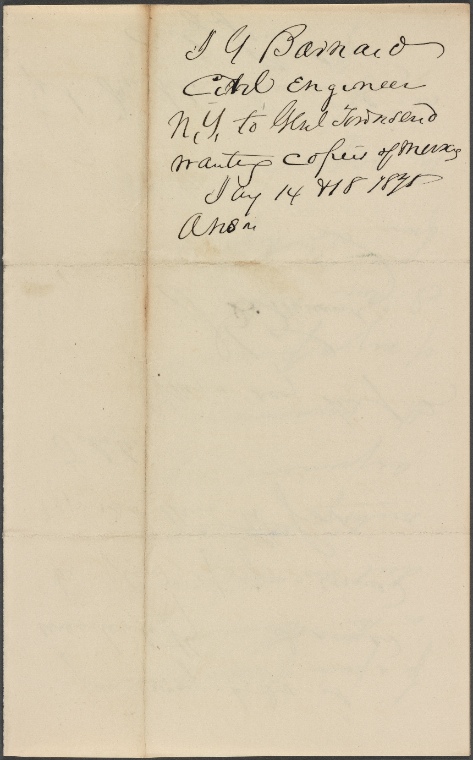 J G Barnard
Civil Engineer
N.Y. to Genl Townsend
wanting copies of
Jay 14 & 18